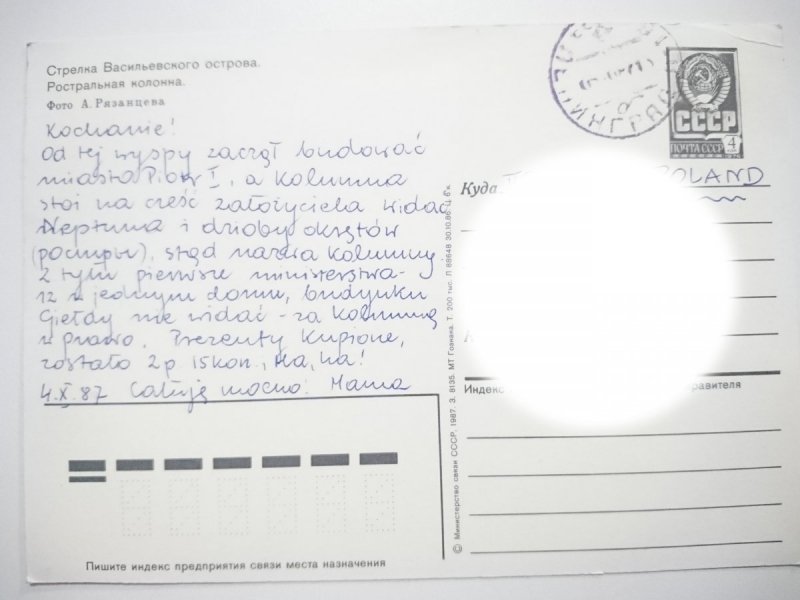 Стрелка Васильевского острова.
Ростральная колонна.
Фото А. Рязанцева
Kochanie!
Od tej wyspy zaczął budować
miasto Piotr I, a Kolumna
stoi na cześć założyciela widać
Neptuna i dzioby okrętów
(ростры), stąd nazwa Kolumny.
Z tyłu pierwsze ministerstwa-
12 w jednym domu, budynku
Giełdy nie widać - za Kolumną
w prawo. Prezenty Kupione,
zostało 2 р. 15 kop., Ha, ha!
4.X.87 Całuję mocno: Mama
Пишите индекс предприятия связи места назначения
© Министерство связи СССР. 1987. З. 8135. МТ Гознака. Т. 200 тыс. Л 69648 30.10.86. Ц. 6 к.
СССР
ПОЧТА СССР 4
Куда POLAND
Индекс
правителя